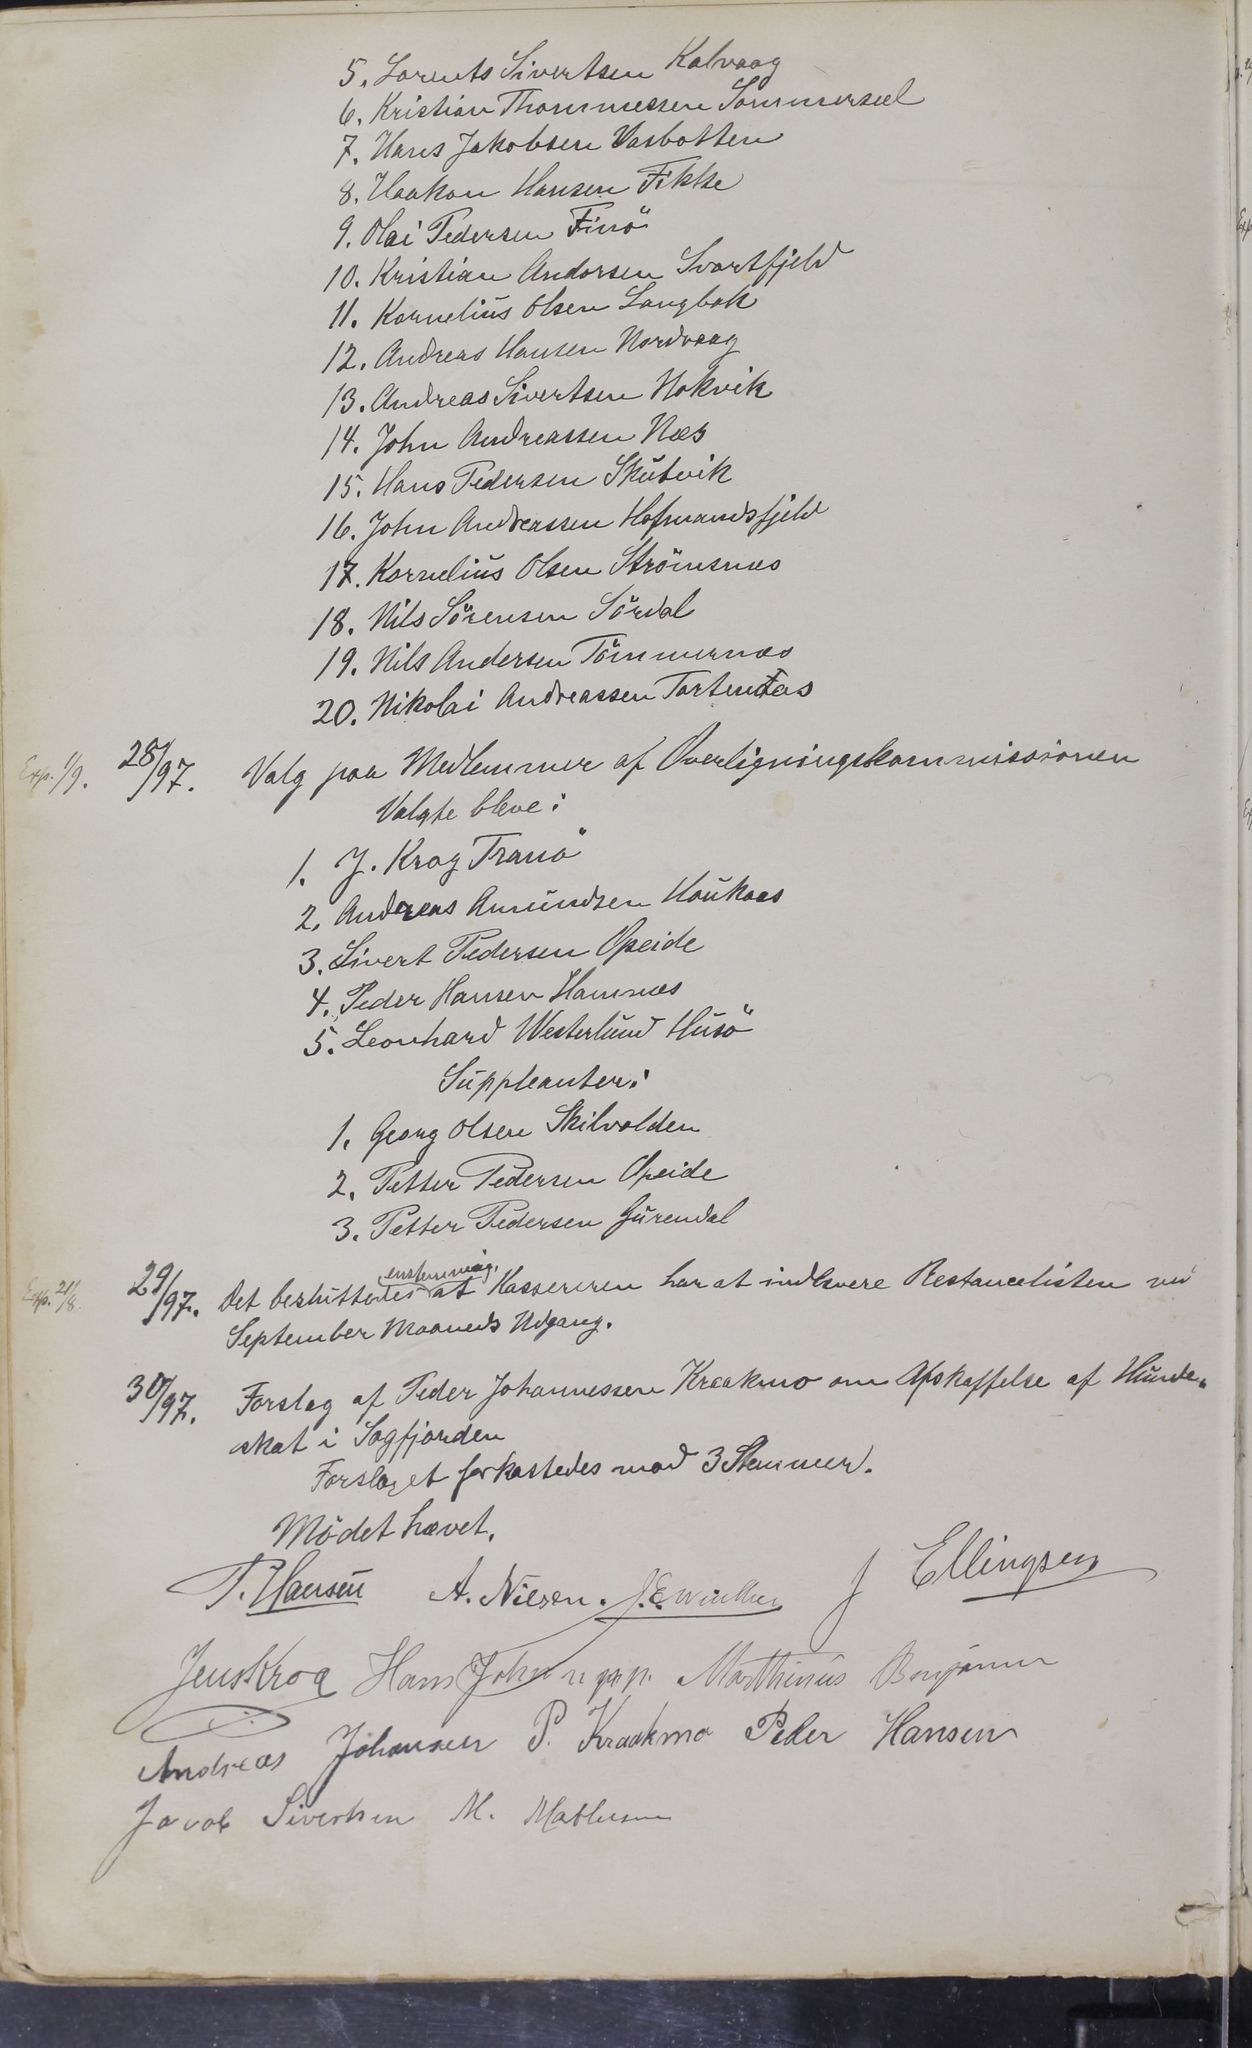 5. Lorents Sivertsen Kalvaag
6. Kristian Thommessen Sommersel
7. Hans Jakobsen Vasbotten
8. Haakon Hansen Fikke
9. Olai Pedersen Finö
10. Kristian Andorsen Svartfjeld
11. Kornelius Olsen Langbak
12. Andreas Hansen Nordvaag
13. Andreas Sivertsen Hokvik
14. John Andreassen Næs
15. Hans Pedersen Skutvik
16. John Andreassen Hofmandsfjeld
17. Kornelius Olsen Strömsnæs
18. Nils Sörensen Sördal
19. Nils Andersen Tömmernæs
20. Nikolai Andreassen Tortenæs
Exp. 1/9. 28/97. Valg paa Medlemmer af Overligningskommissionen
Valgte bleve:
1. J. Krog Tranö
2. Andreas Amundsen Haukaas
3. Sivert Pedersen Opeide
4. Peder Hansen Hamnæs
5. Leonhard Westerlund Husö
Suppleanter:
1. Georg Olsen Skilvolden
2. Petter Pedersen Opeide
3. Petter Pedersen Gurendal
enstemmig.
Exp. 21/8. 29/97. Det besluttedes at Kassereren har at indlevere Restancelisten ved
September Maaneds Udgang.
30/97. Forslag af Peder Johannessen Kraakmo om Afskaffelse af Hunde-
skat i Sagfjorden
Forslaget forkastedes mod 3 Stemmer.
Mödet hævet.
P. Hansen A. Nilsen. J. Ellingsen
Jens Krog Hans John Marthinus Benjamin
Andreas Johansen P. Kraakmo Peder Hansen
Jacob Sivertsen M. Mathesen